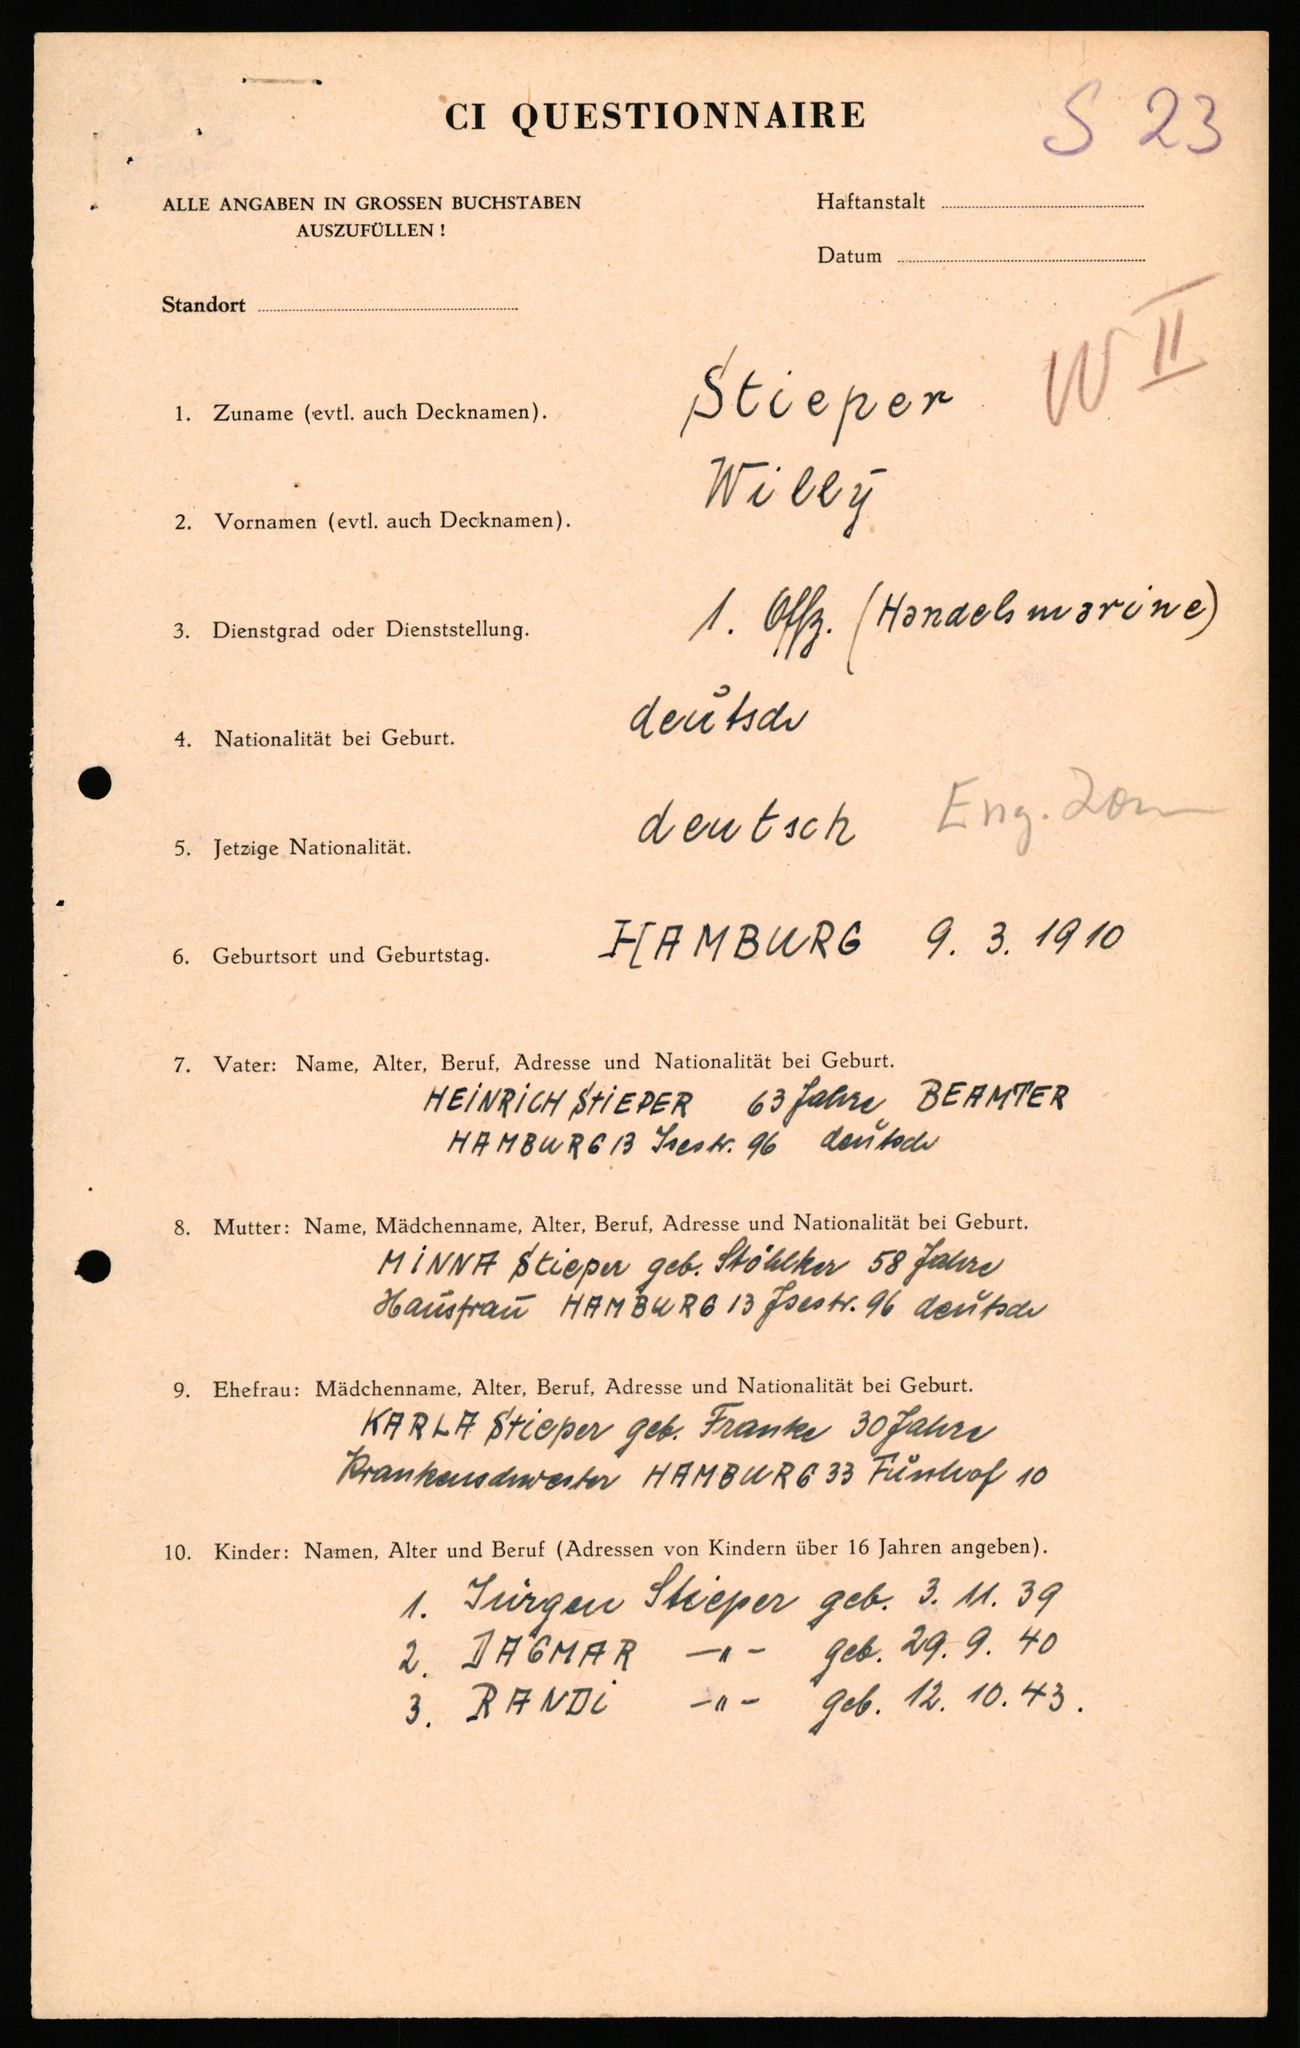 CI QUESTIONNAIRE
S 23
ALLE ANGABEN IN GROSSEN BUCHSTABEN
AUSZUFÜLLEN !
Haftanstalt
Datum
Standort
W II
1. Zuname (evtl. auch Decknamen). Stieper
2. Vornamen (evtl. auch Decknamen). Willy
3. Dienstgrad oder Dienststellung. 1. Offz. (Handelsmarine)
4. Nationalität bei Geburt. deutsch
5. Jetzige Nationalität. deutsch Eng.
6. Geburtsort und Geburtstag. HAMBURG 9. 3. 1910
7. Vater: Name, Alter, Beruf, Adresse und Nationalität bei Geburt.
HEINRICH STIEPER 63 Jahre BEAMTER
HAMBURG 13 Isestr. 96 deutsch
8. Mutter: Name, Mädchenname, Alter, Beruf, Adresse und Nationalität bei Geburt.
MINNA Stieper geb. Stöhlker 58 Jahre
Hausfrau HAMBURG 13 Isestr. 96 deutsch
9. Ehefrau: Mädchenname, Alter, Beruf, Adresse und Nationalität bei Geburt.
KARLA Stieper geb. Franke 30 Jahre
Krankenschwester HAMBURG 33 10
10. Kinder: Namen, Alter und Beruf (Adressen von Kindern über 16 Jahren angeben).
1. Jürgen Stieper geb. 3. 11. 39
2. DAGMAR -"- geb. 29. 9. 40
3. RANDI -"- geb. 12. 10. 43.